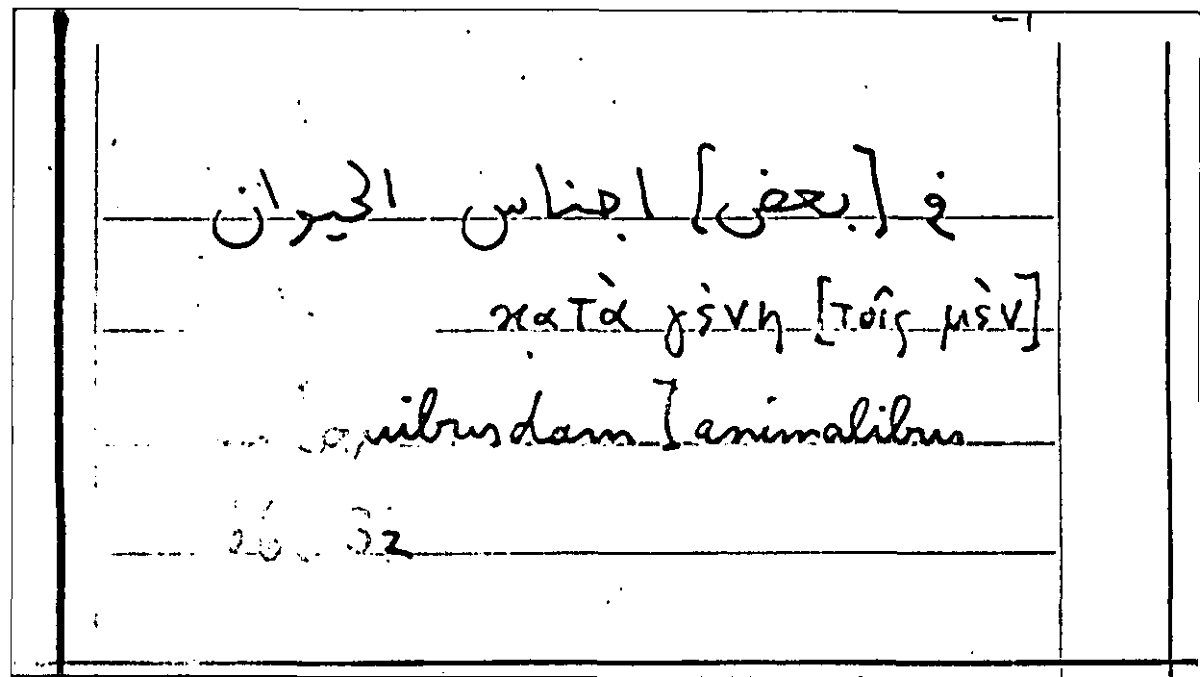 في [بعض] اجناس الحيوان
κατὰ γένη [τοῖς μὲν]
[quibusdam] animalibus